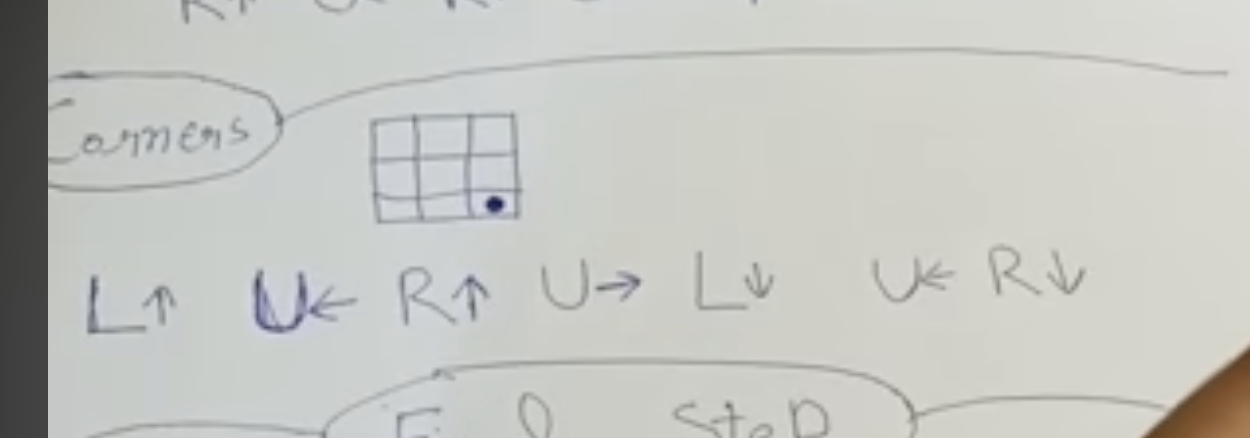 Corners
L↑ U← R↑ U→ L↓ U← R↓
Step